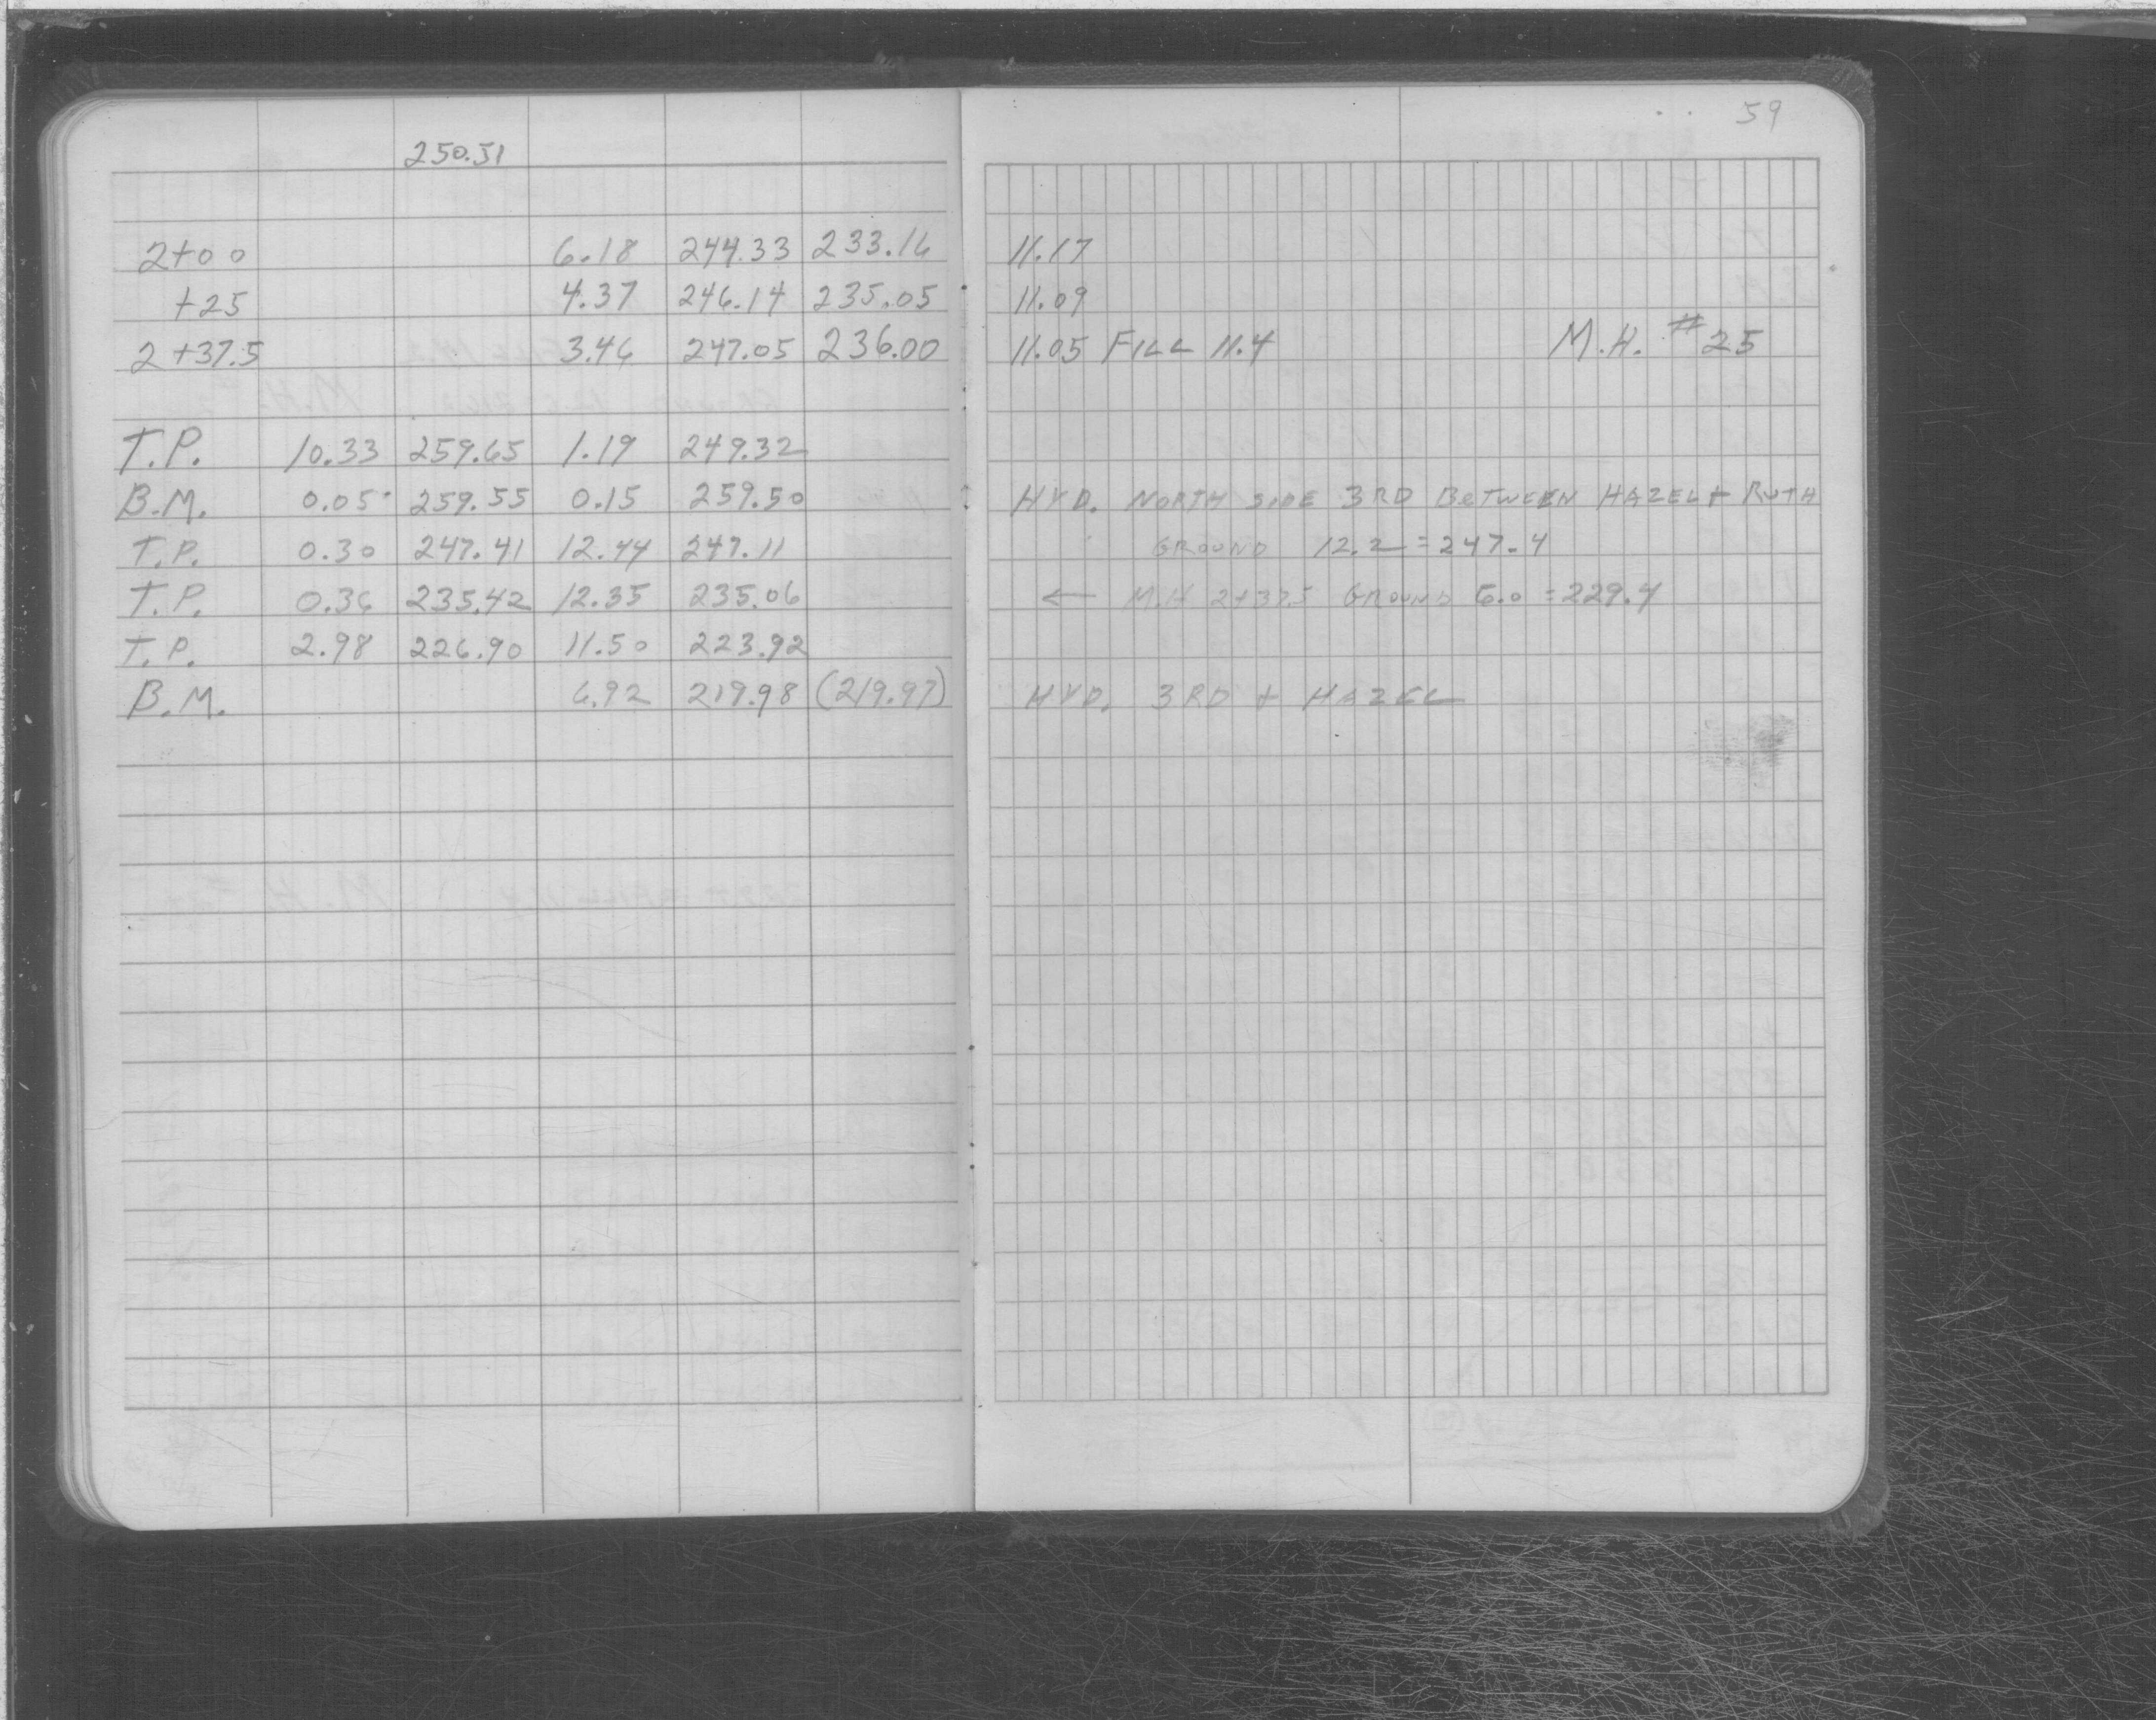 59
250.51
2+00 6.18 244.33 233.16 11.17
+25 4.37 246.14 235.05 11.09
2+37.5 3.46 247.05 236.00 11.05 FILL 11.4 M.H. #25
T.P. 10.33 259.65 1.19 249.32
B.M. 0.05 259.55 0.15 259.50 HYD. NORTH SIDE 3RD BETWEEN HAZEL + RUTH
T.P. 0.30 247.41 12.44 247.11 GROUND 12.2 = 247.4
T.P. 0.36 235.42 12.35 235.06 ← M.H 2+37.5 GROUND 6.0 = 229.4
T.P. 2.98 226.90 11.50 223.92
B.M. 6.92 219.98 (219.97) HYD. 3RD + HAZEL